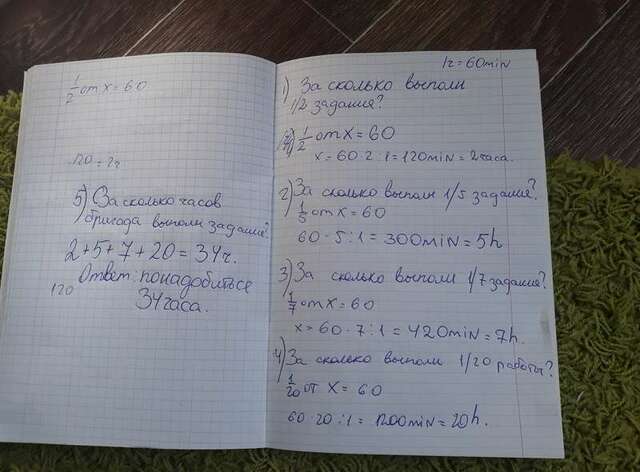 1/2 от x = 60
120 = 2ч
5) За сколько часов
бригада выполн задание?
2+5+7+20 = 34ч.
Ответ: понадобиться
120
34 часа.
1ч = 60min
1) За сколько выполн
1/2 задания?
1/2 от x = 60
x = 60·2:1 = 120min = 2 часа.
2) За сколько выполн 1/5 задание?
1/5 от x = 60
60·5:1 = 300min = 5h
3) За сколько выполн 1/7 задание?
1/7 от x = 60
x = 60·7:1 = 420min = 7h.
4) За сколько выполн 1/20 работы?
1/20 от x = 60
60·20:1 = 1200min = 20h.